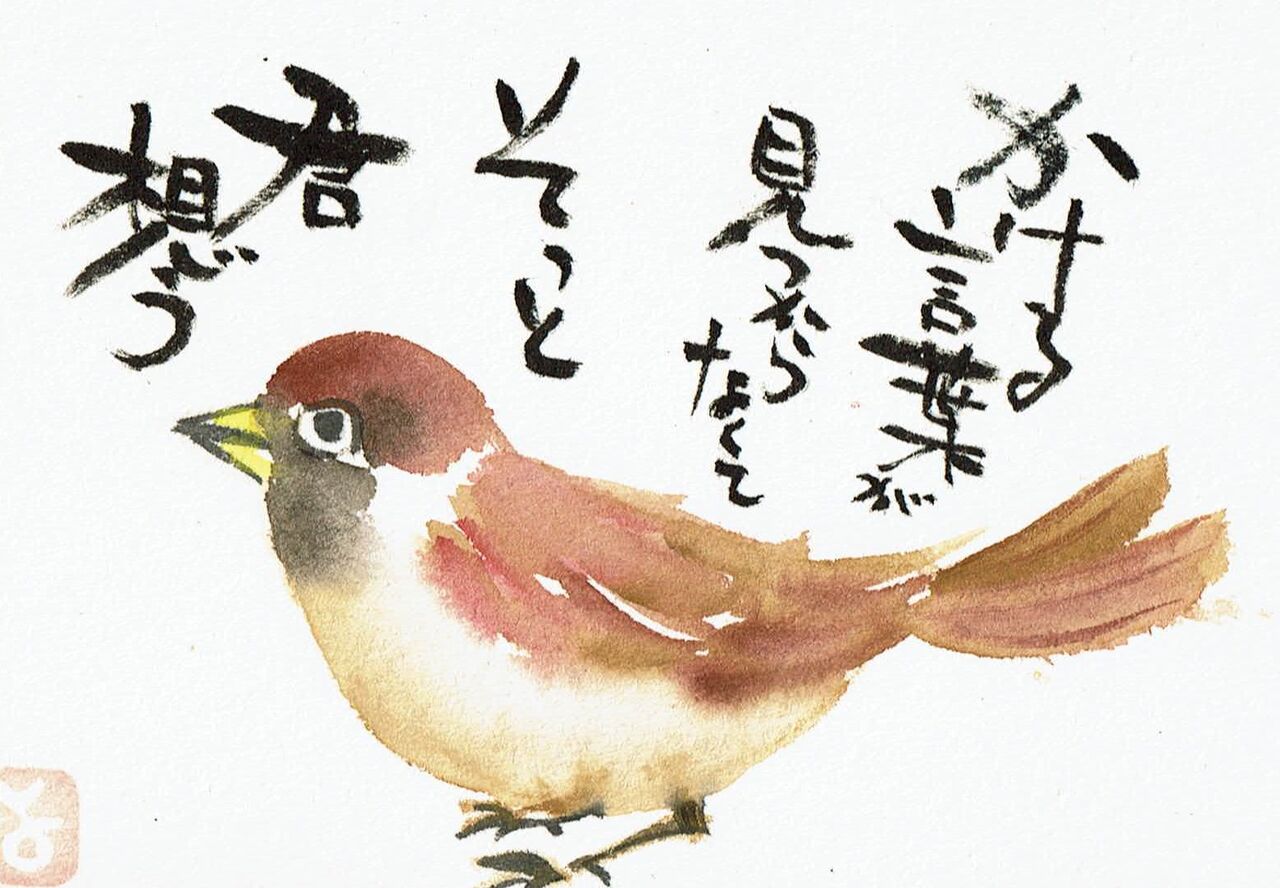 かける
言葉が
見つから
なくて
そっと
君
想う